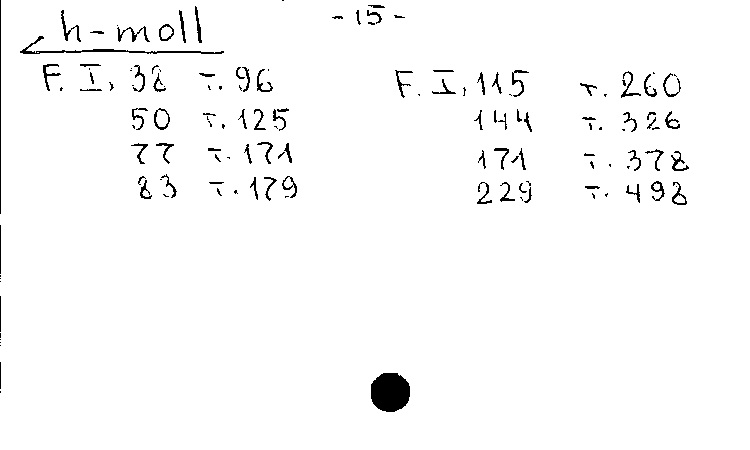 - 15 -
h-moll
F. I, 38 т. 96
50 т. 125
77 т. 171
83 т. 179
F. I, 115 т. 260
144 т. 326
171 т. 378
229 т. 498